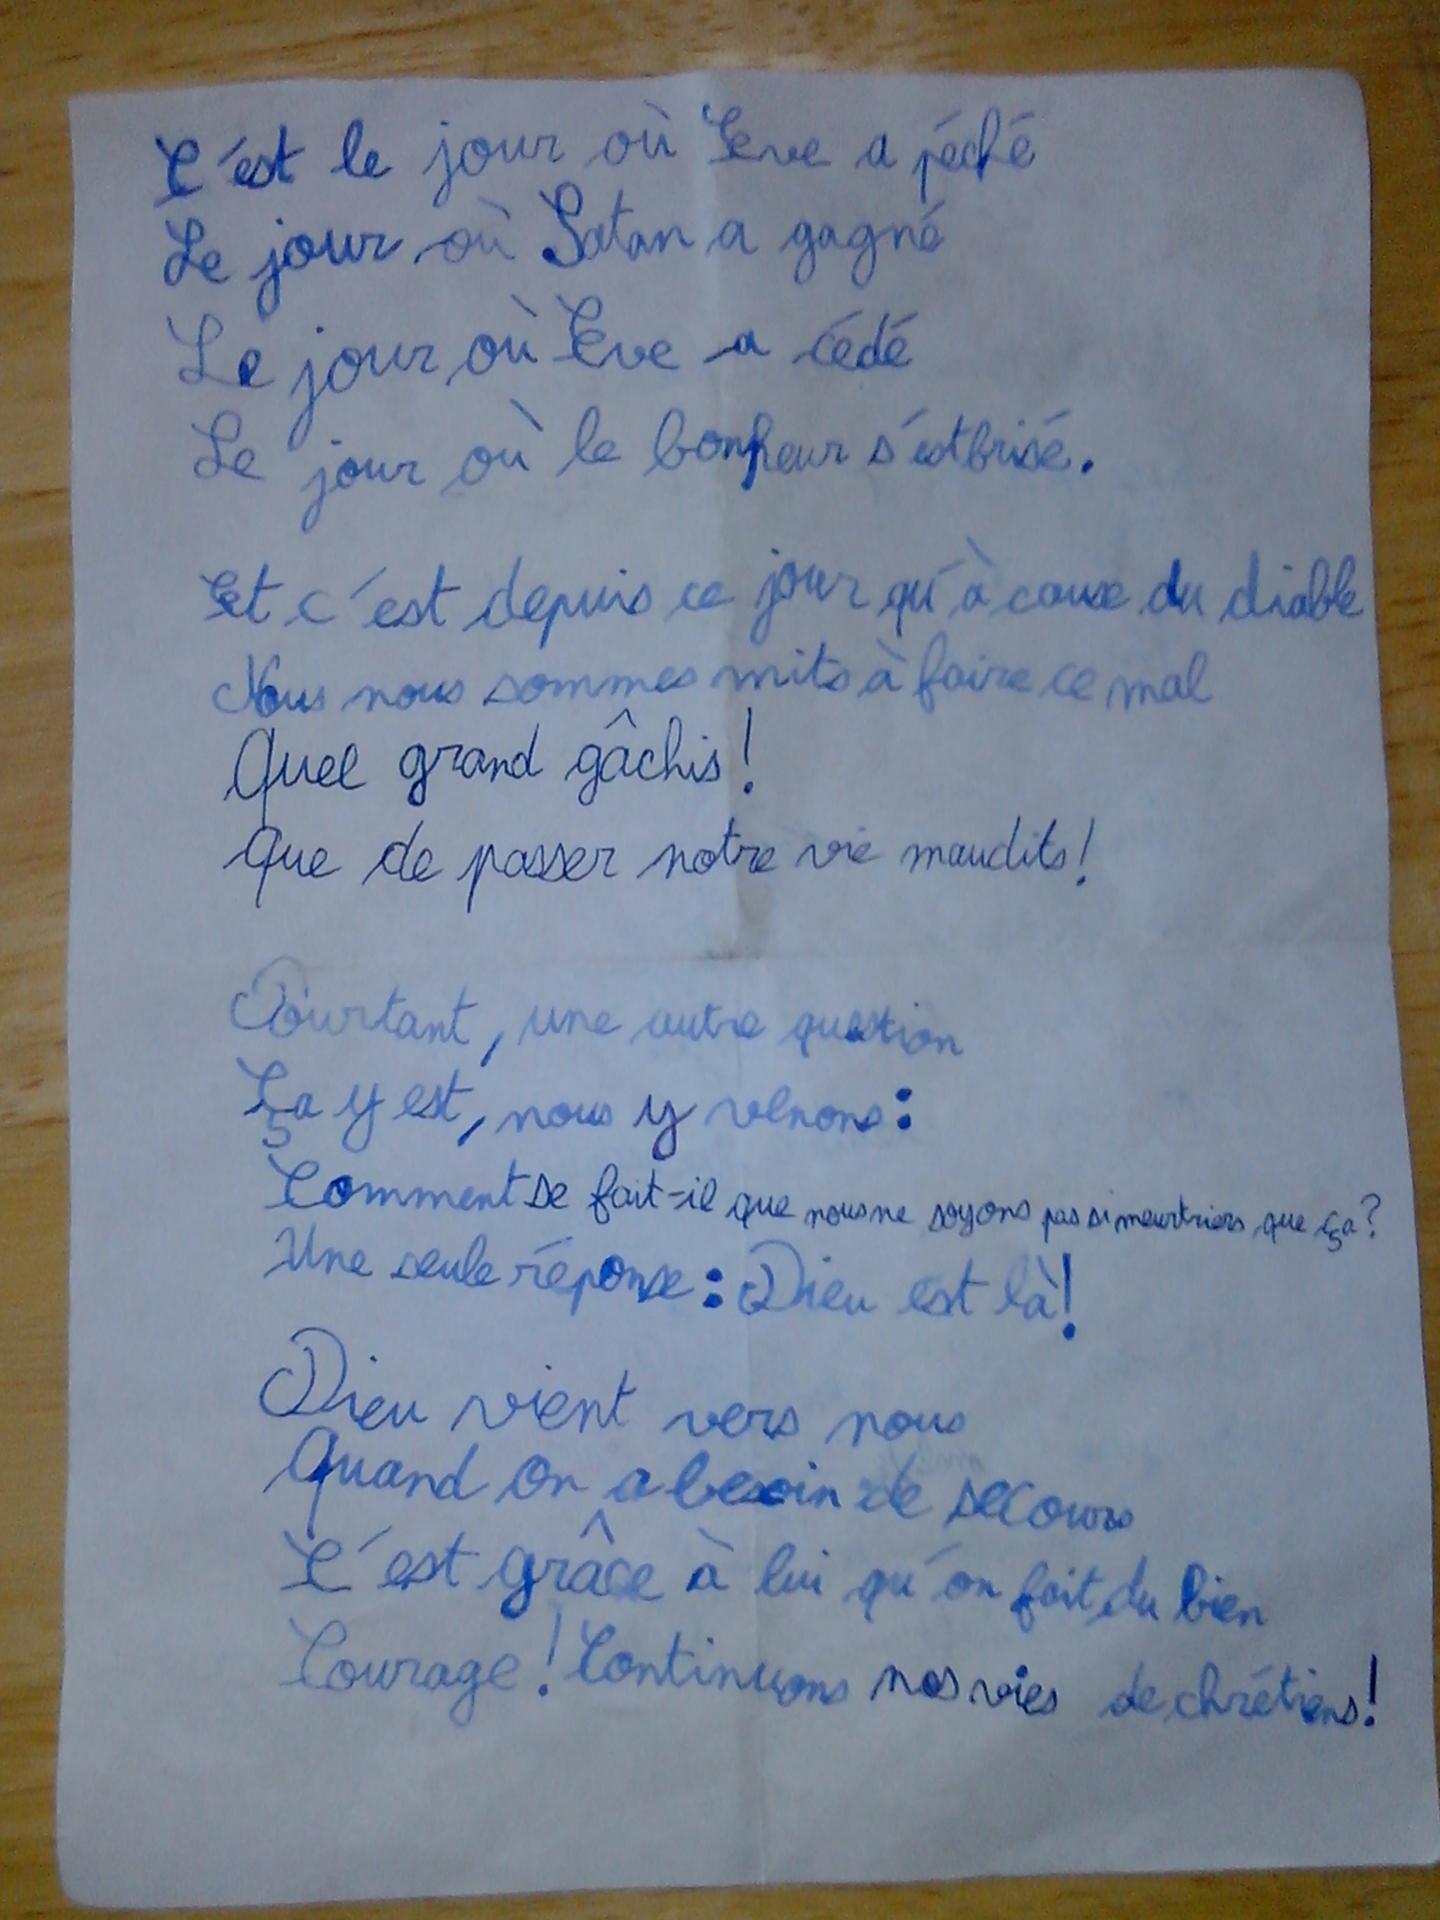 C'est le jour où Eve a péché
Le jour où Satan a gagné
Le jour où Eve a cédé
Le jour où le bonheur s'est brisé.
Et c'est depuis ce jour qu'à cause du diable
Nous nous sommes mits à faire ce mal
Quel grand gâchis !
Que de passer notre vie maudits !
Pourtant, une autre question
Ça y est, nous y venons :
Comment se fait-il que nous ne soyons pas si meurtriers que ça ?
Une seule réponse : Dieu est là !
Dieu vient vers nous
Quand on a besoin de secours
C'est grâce à lui qu'on fait du bien
Courage ! Continuons nos vies de chrétiens !